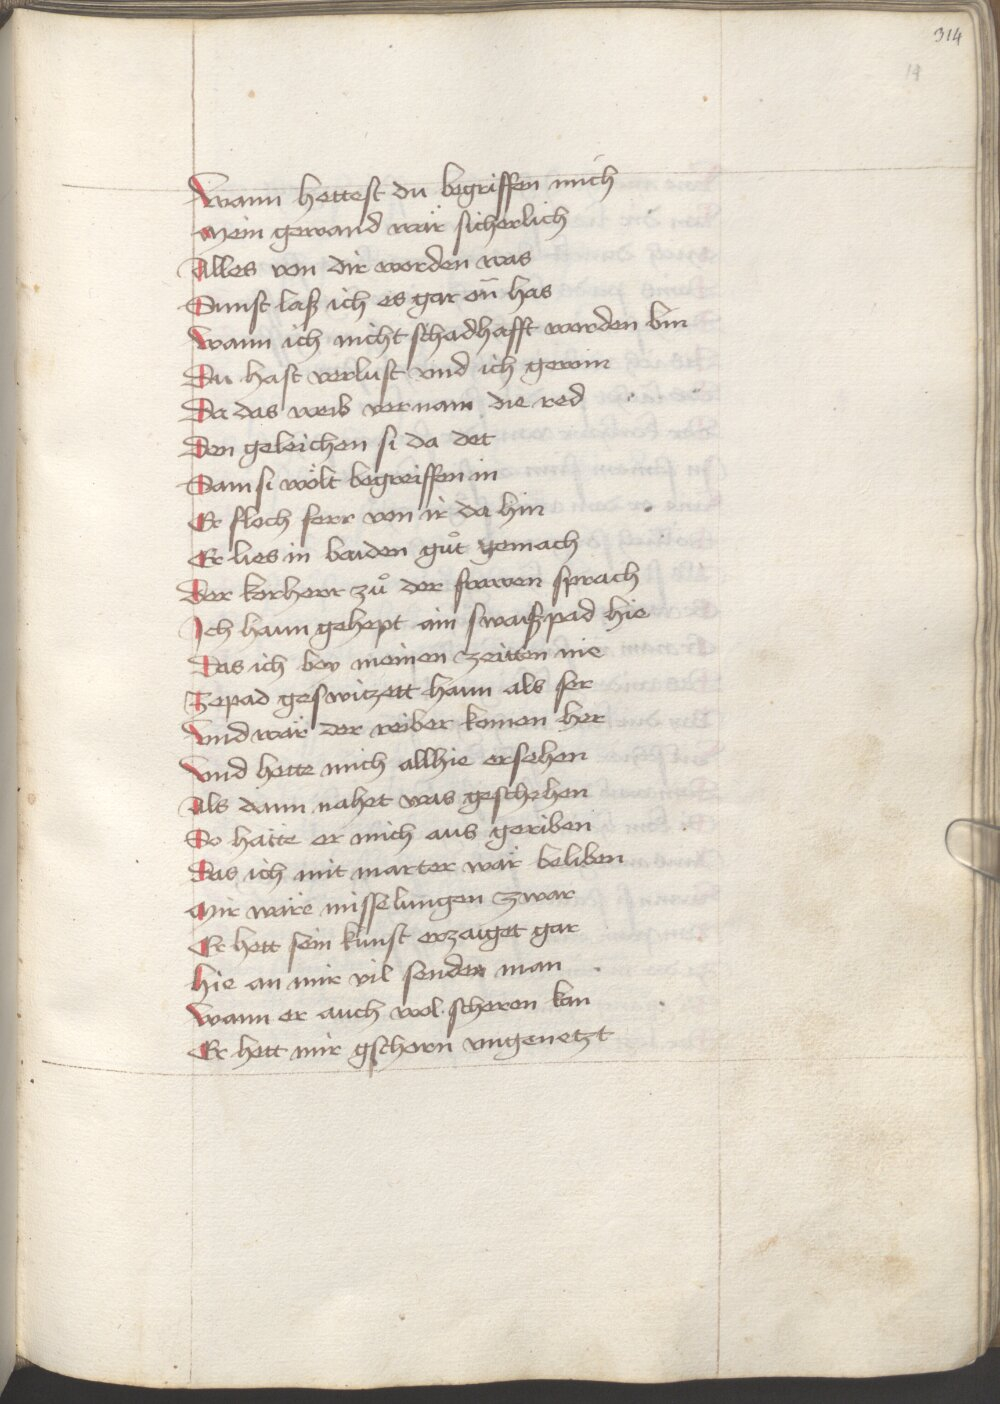 314
19
Wann hettest du begriffen mich
Mein gewand wär sicherlich
Alles von dir worden was
Sunst laß ich es gar on has
Wann ich nicht schadhafft worden bin
Du hast verlust vnd ich gewin
Da das weib vernam die red
Den geleichen si da det
Sam si wölt begreiffen in
Er floch ferr von ir da hin
Er lies in baiden gůt gemach
Der korherr zů der frawen sprach
Ich haun gehept ain swaiszpad hie
Das ich bey meinen zeitten nie
Zepad geswitzett haun als ser
Vnd wär der weiber komen her
Vnd hette mich allhie ersehen
Als dann nahet was geschehen
So hätte er mich aus geriben
Das ich mit marter wär beliben
Mir wäre misselungen zwar
Er hett sein kunst erzaiget gar
Hie an mir vil senden man
Wann er auch wol scheren kan
Er hett mir gschorn vngenetzt